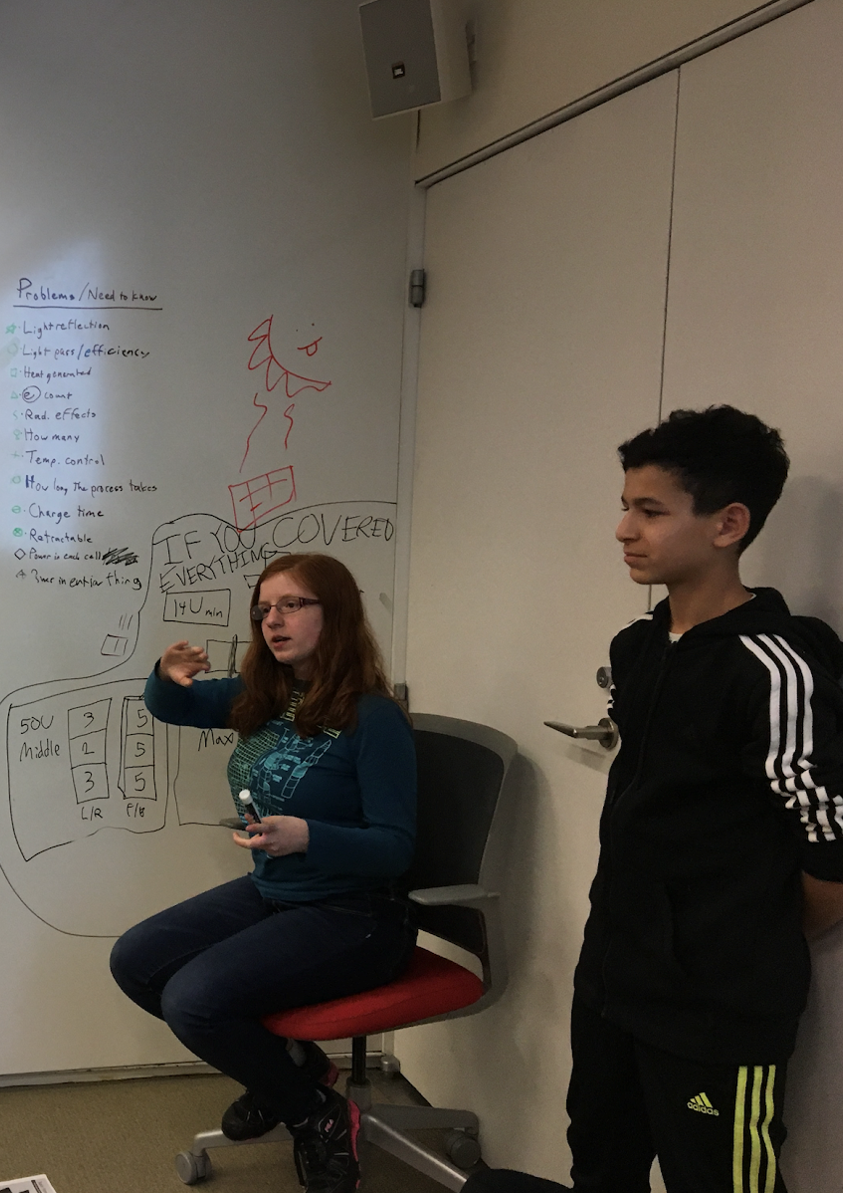 Problems/Need to know
Light reflection
Light pass/efficiency
Heat generated
e⁻ count
Rad. effects
How many
Temp. control
How long The process takes
Charge time
Retractable
Power in each cell
in entire thing
IF YOU COVERED
EVERYTHING
14U min
50U
Middle
3
2
3
L/R
5
5
5
F/B
Max
JBL
FILA
adidas